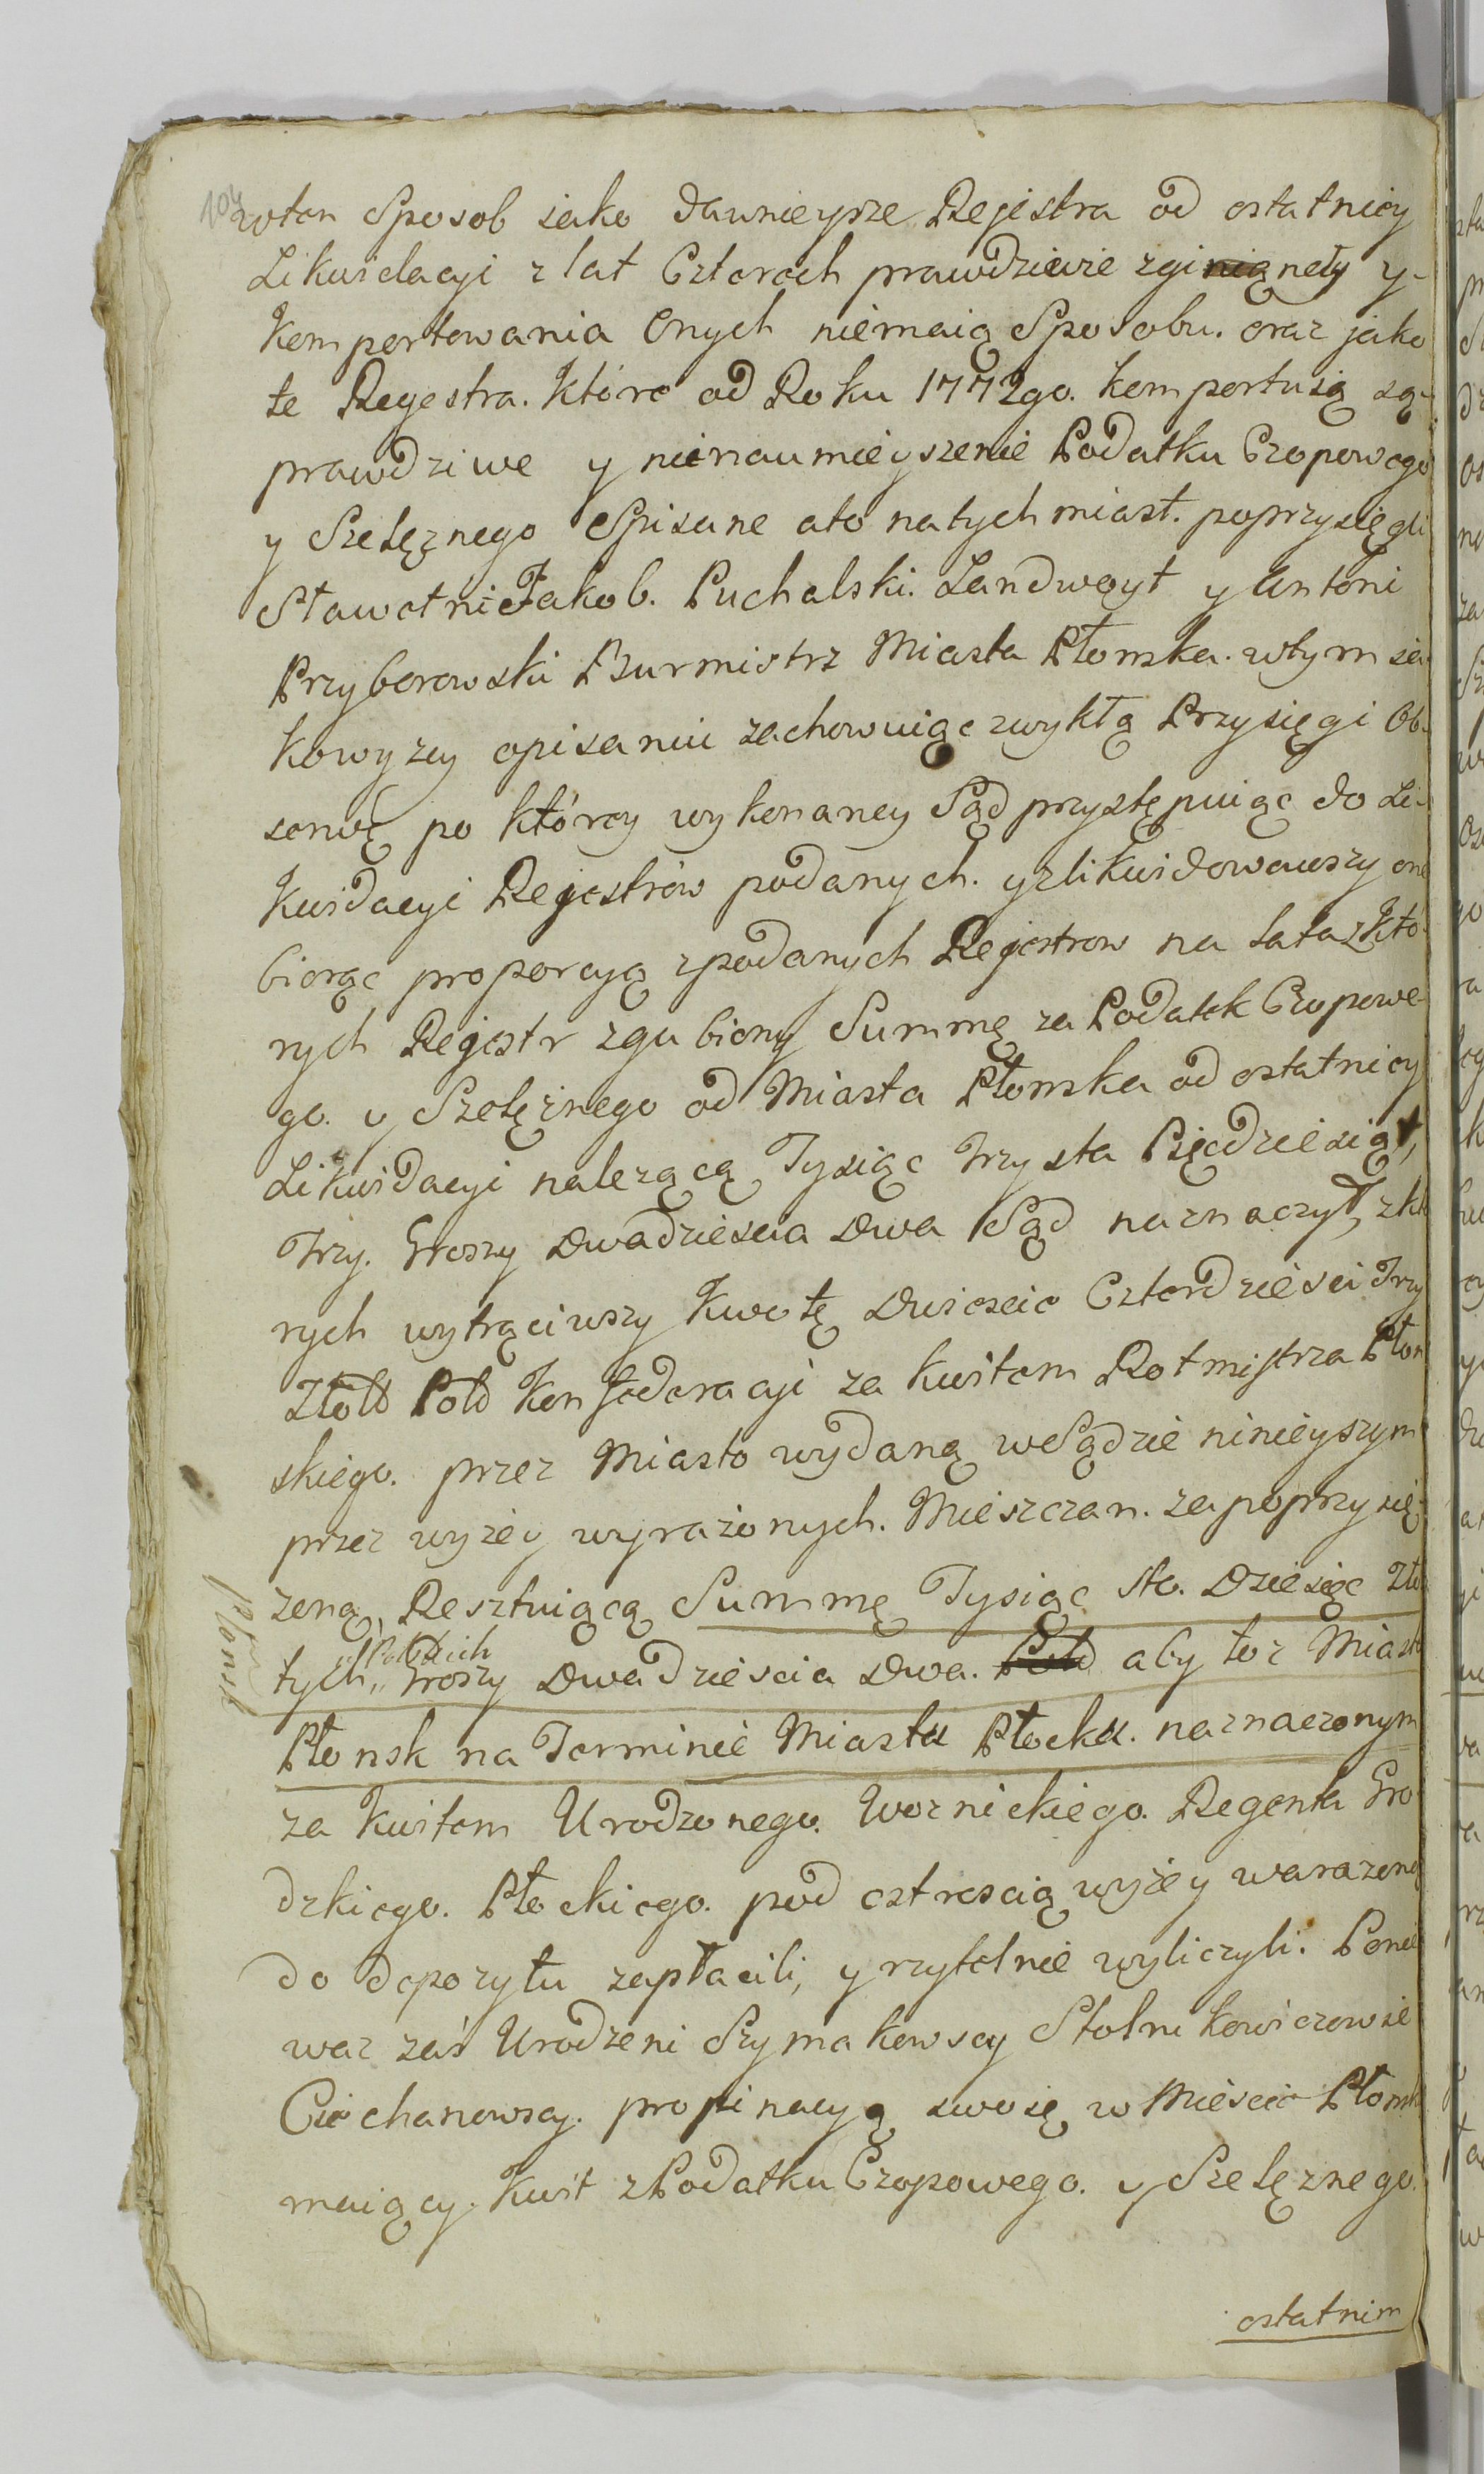 104
wten Sposob iako dawnieysze Rejestra od ostatniey
Likwidacyi z lat Czterech prawdziwie zginęły y
komportowania Onych niemaią Sposobu. oraz jako
te Regestra. które od Roku 1772go. komportuią są
prawdziwe y nienaumieyszenie Podatku Czopowego
y Szelężnego Spisane ato natychmiast. poprzysięgli
Sławetni Jakob. Puchalski. Landwoyt y Antoni
Przyborowski Burmistrz Miasta Płonska. wtym ia-
kowyzey opisaniu zachowuiąc zwykłą Przysięgi Ob-
serwę po którey wykonaney Sąd przystępuiąc do Li-
kwidacyi Rejestrów podanych. y zlikwidowawszy one
biorąc proporcyą zpodanych Rejestrow na Lata z któ-
rych Rejestr zgubiony Summę za Podatek Czopowe-
go. y Szelężnego od Miasta Płonska od ostatniey
Likwidacyi nalezącą Tysiąc Trzysta Pięcdziesiąt,
Trzy. Groszy Dwadziescia Dwa Sąd naznaczył, z któ
rych wytrąciwszy Kwotę Dwiescie Czterdziesci Trzy
Złotł Pold Konfederacyi za kwitem Rotmistrza Płon
skiego. przez Miasto wydaną wSądzie ninieyszym
przez wyzey wyrażonych. Mieszczan. zapoprzysię-
zeną, Resztuiącą Summę Tysiąc Sto. Dziesięc Zło
tych, Polskich Groszy Dwadziescia Dwa. aby toz Miasto
Płonsk
Płonsk na Terminie Miastu Płocku. naznaczonym
za kwitem Urodzonego. Woznickiego. Regenta Gro
dzkiego. Płockiego. pod ostroscią wyżey warazoną
do depozytu zapłacili, y rzytelnie wyliczyli. Ponie
waz zaś Urodzeni Szymakowscy Stolnikowiczowie
Ciechanowscy. propinacyą swoię w Miescie Płonsk
maiący. kwit z Podatku Czopowego. y Szelęznego.
ostatnim